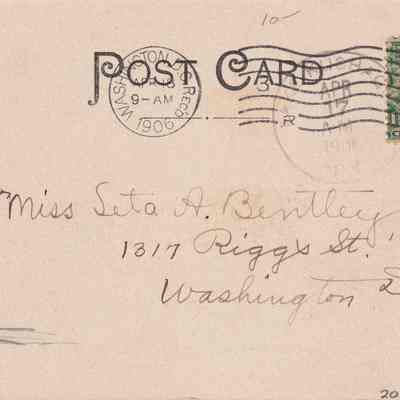 10-
POST CARD
WASHINGTON, D.C. REC'D.
9-AM
1906
3
R
APR
17
A.M
Miss Seta A. Bentley
1317 Riggs St.
Washington D
20